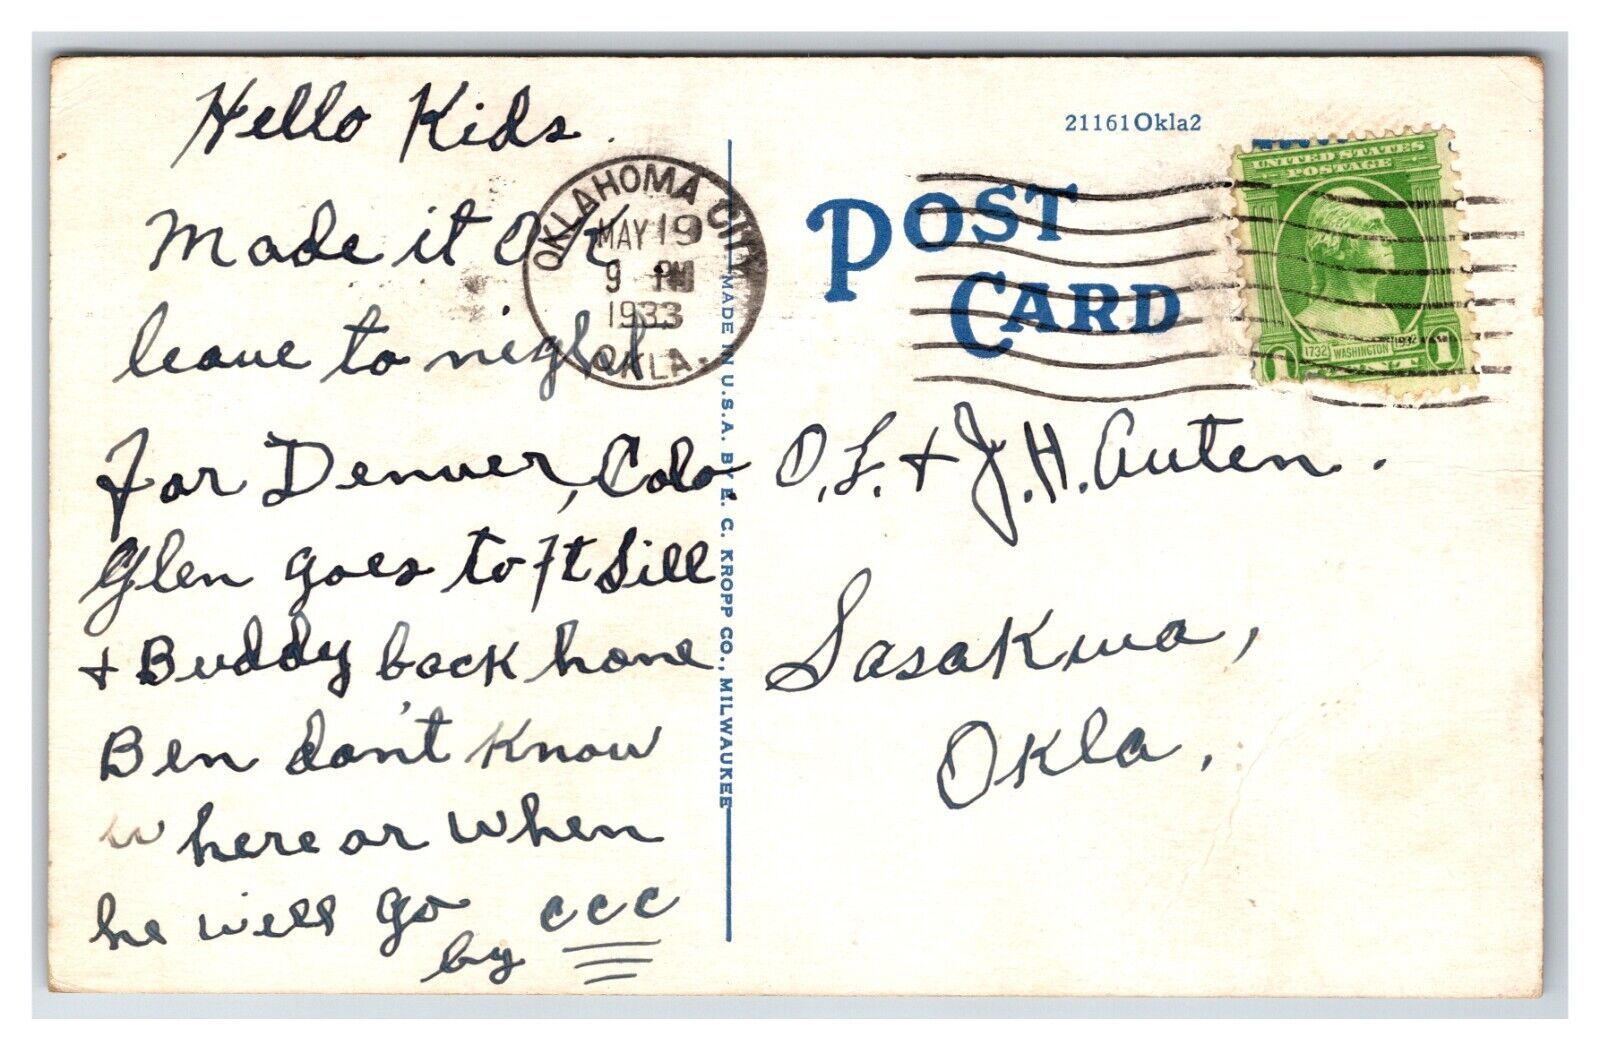 Hello Kids.
Made it OK
leave to night
for Denver, Colo.
Glen goes to Ft Sill
+ Buddy back home
Ben don't know
where or when
he will go
by ccc
21161Okla2
POST
CARD
OKLAHOMA CITY
MAY 19
9 PM
1933
OKLA.
UNITED STATES
POSTAGE
1732 WASHINGTON 1932
1 CENT 1
MADE IN U.S.A. BY E. C. KROPP CO., MILWAUKEE
O. L. + J. H. Auten.
Sasakwa,
Okla,